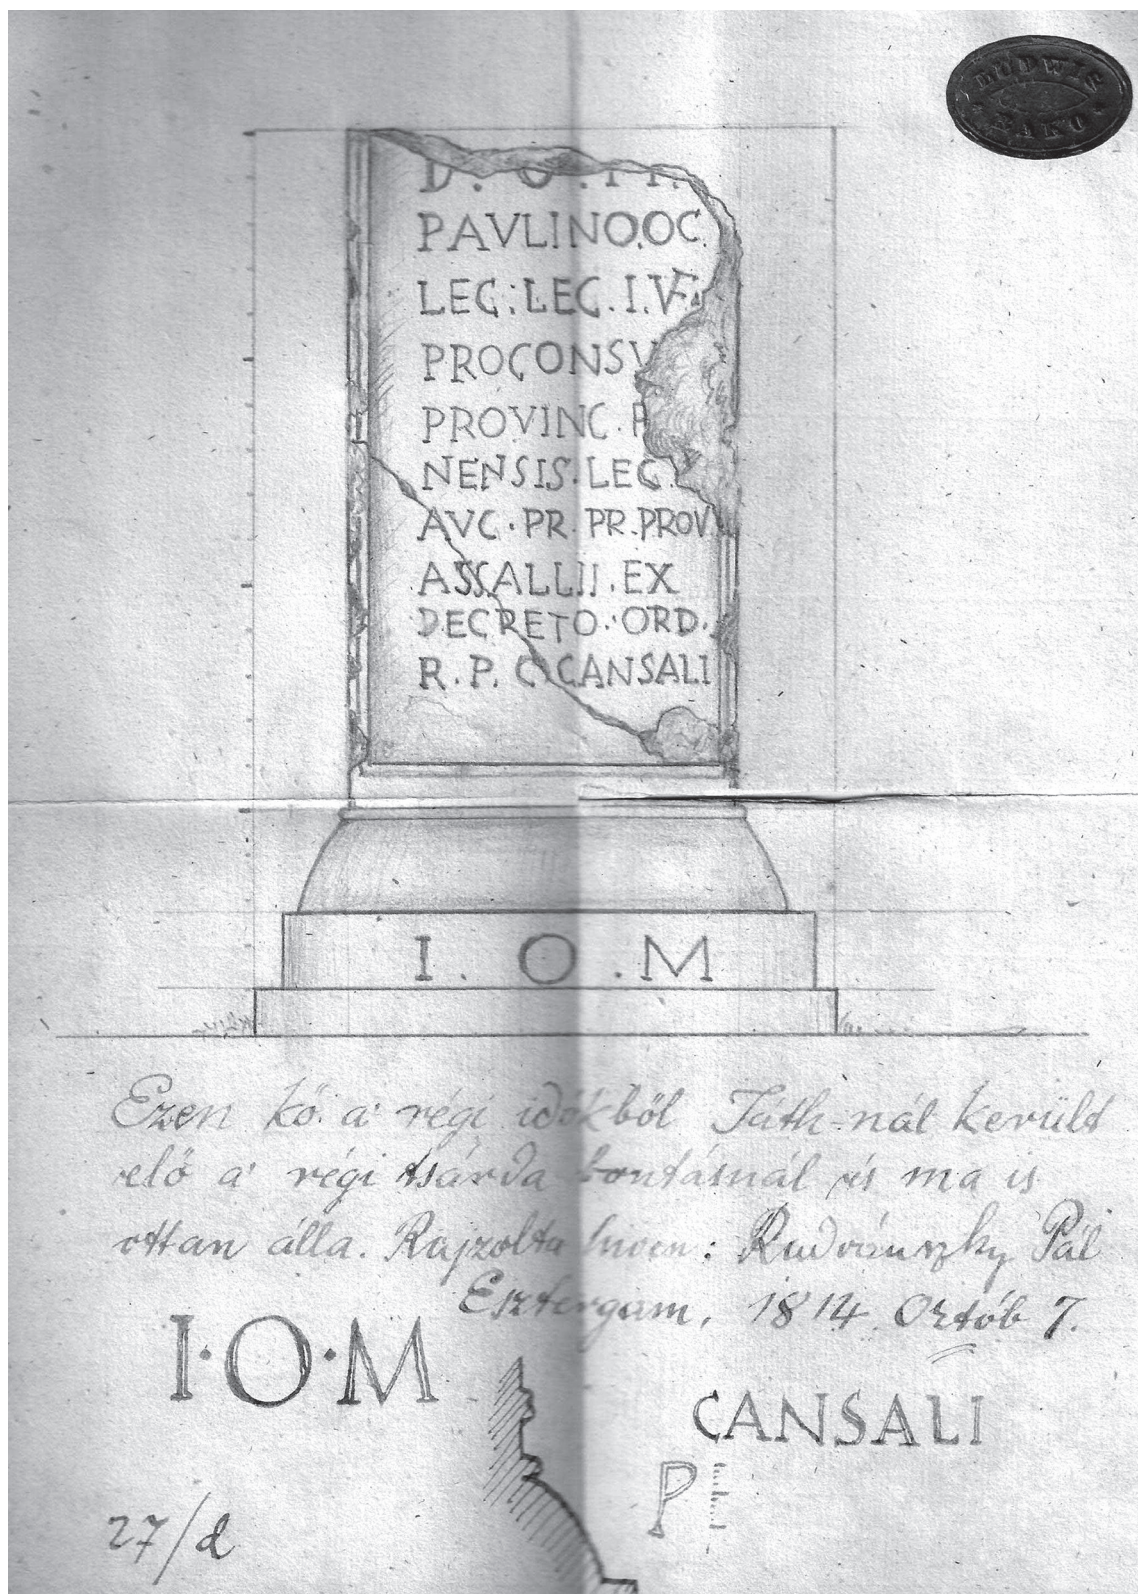 LUDWIG
ZAKO
D. O. M.
PAVLINO.OC.
LEG:LEG.I.V
PROCONSV
PROVINC.P
NENSIS.LEG.
AVC.PR.PR.PROV
ASSALLII.EX
DECRETO.ORD.
R.P.C.CANSALI
I. O .M
Ezen kő a' régi időkből Táth-nál került
elő a' régi tsárda bontásnál és ma is
ottan álla. Rajzolta híven: Radvánszky Pál
Esztergam, 1814 Október 7.
I.O.M
CANSALI
P
27/d